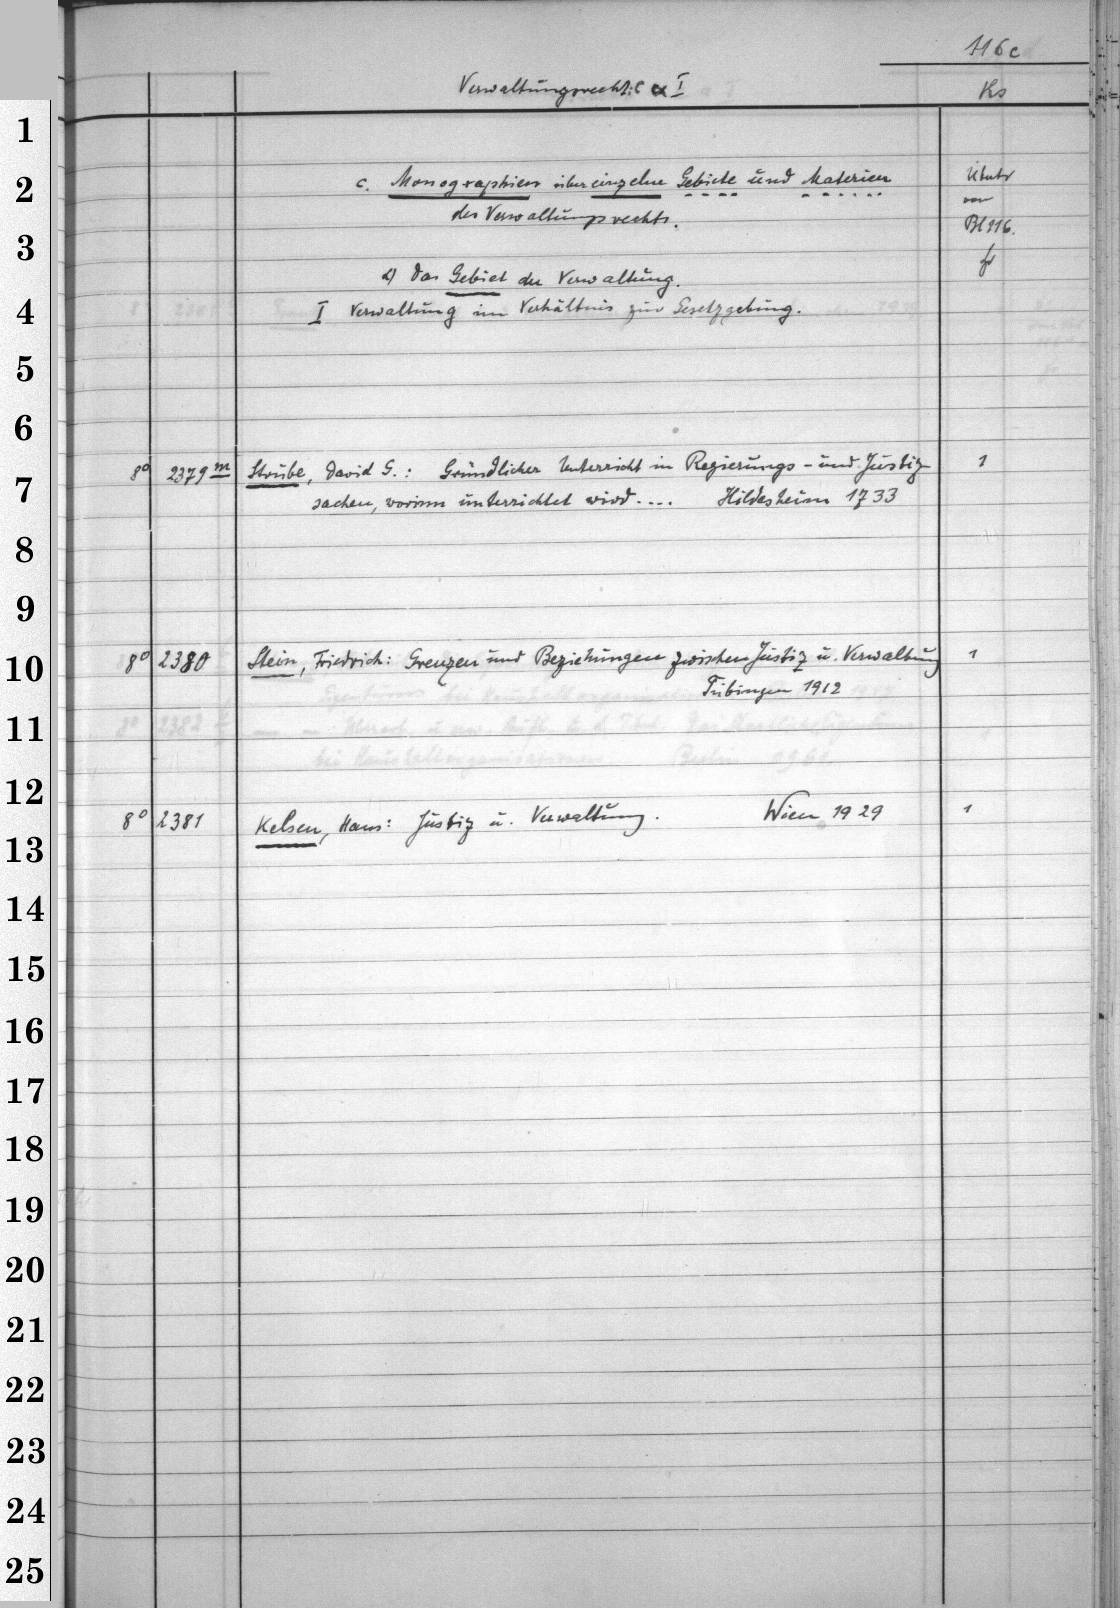 116c
Verwaltungsrecht: C α I
Ks
c. Monographien über einzelne Gebiete und Materien
des Verwaltungsrechts.
von
Bl 116.
α) Das Gebiet der Verwaltung.
I Verwaltung im Verhältnis zur Gesetzgebung.
8° 2379 m Strube, David G.: Gründlicher Unterricht in Regierungs- und Justiz- 1
sachen, worinn unterrichtet wird .... Hildesheim 1733
8° 2380 Stein, Friedrich: Grenzen und Beziehungen zwischen Justiz u. Verwaltung 1
Tübingen 1912
8° 2381 Kelsen, Hans: Justiz u. Verwaltung. Wien 1929 1
1
2
3
4
5
6
7
8
9
10
11
12
13
14
15
16
17
18
19
20
21
22
23
24
25